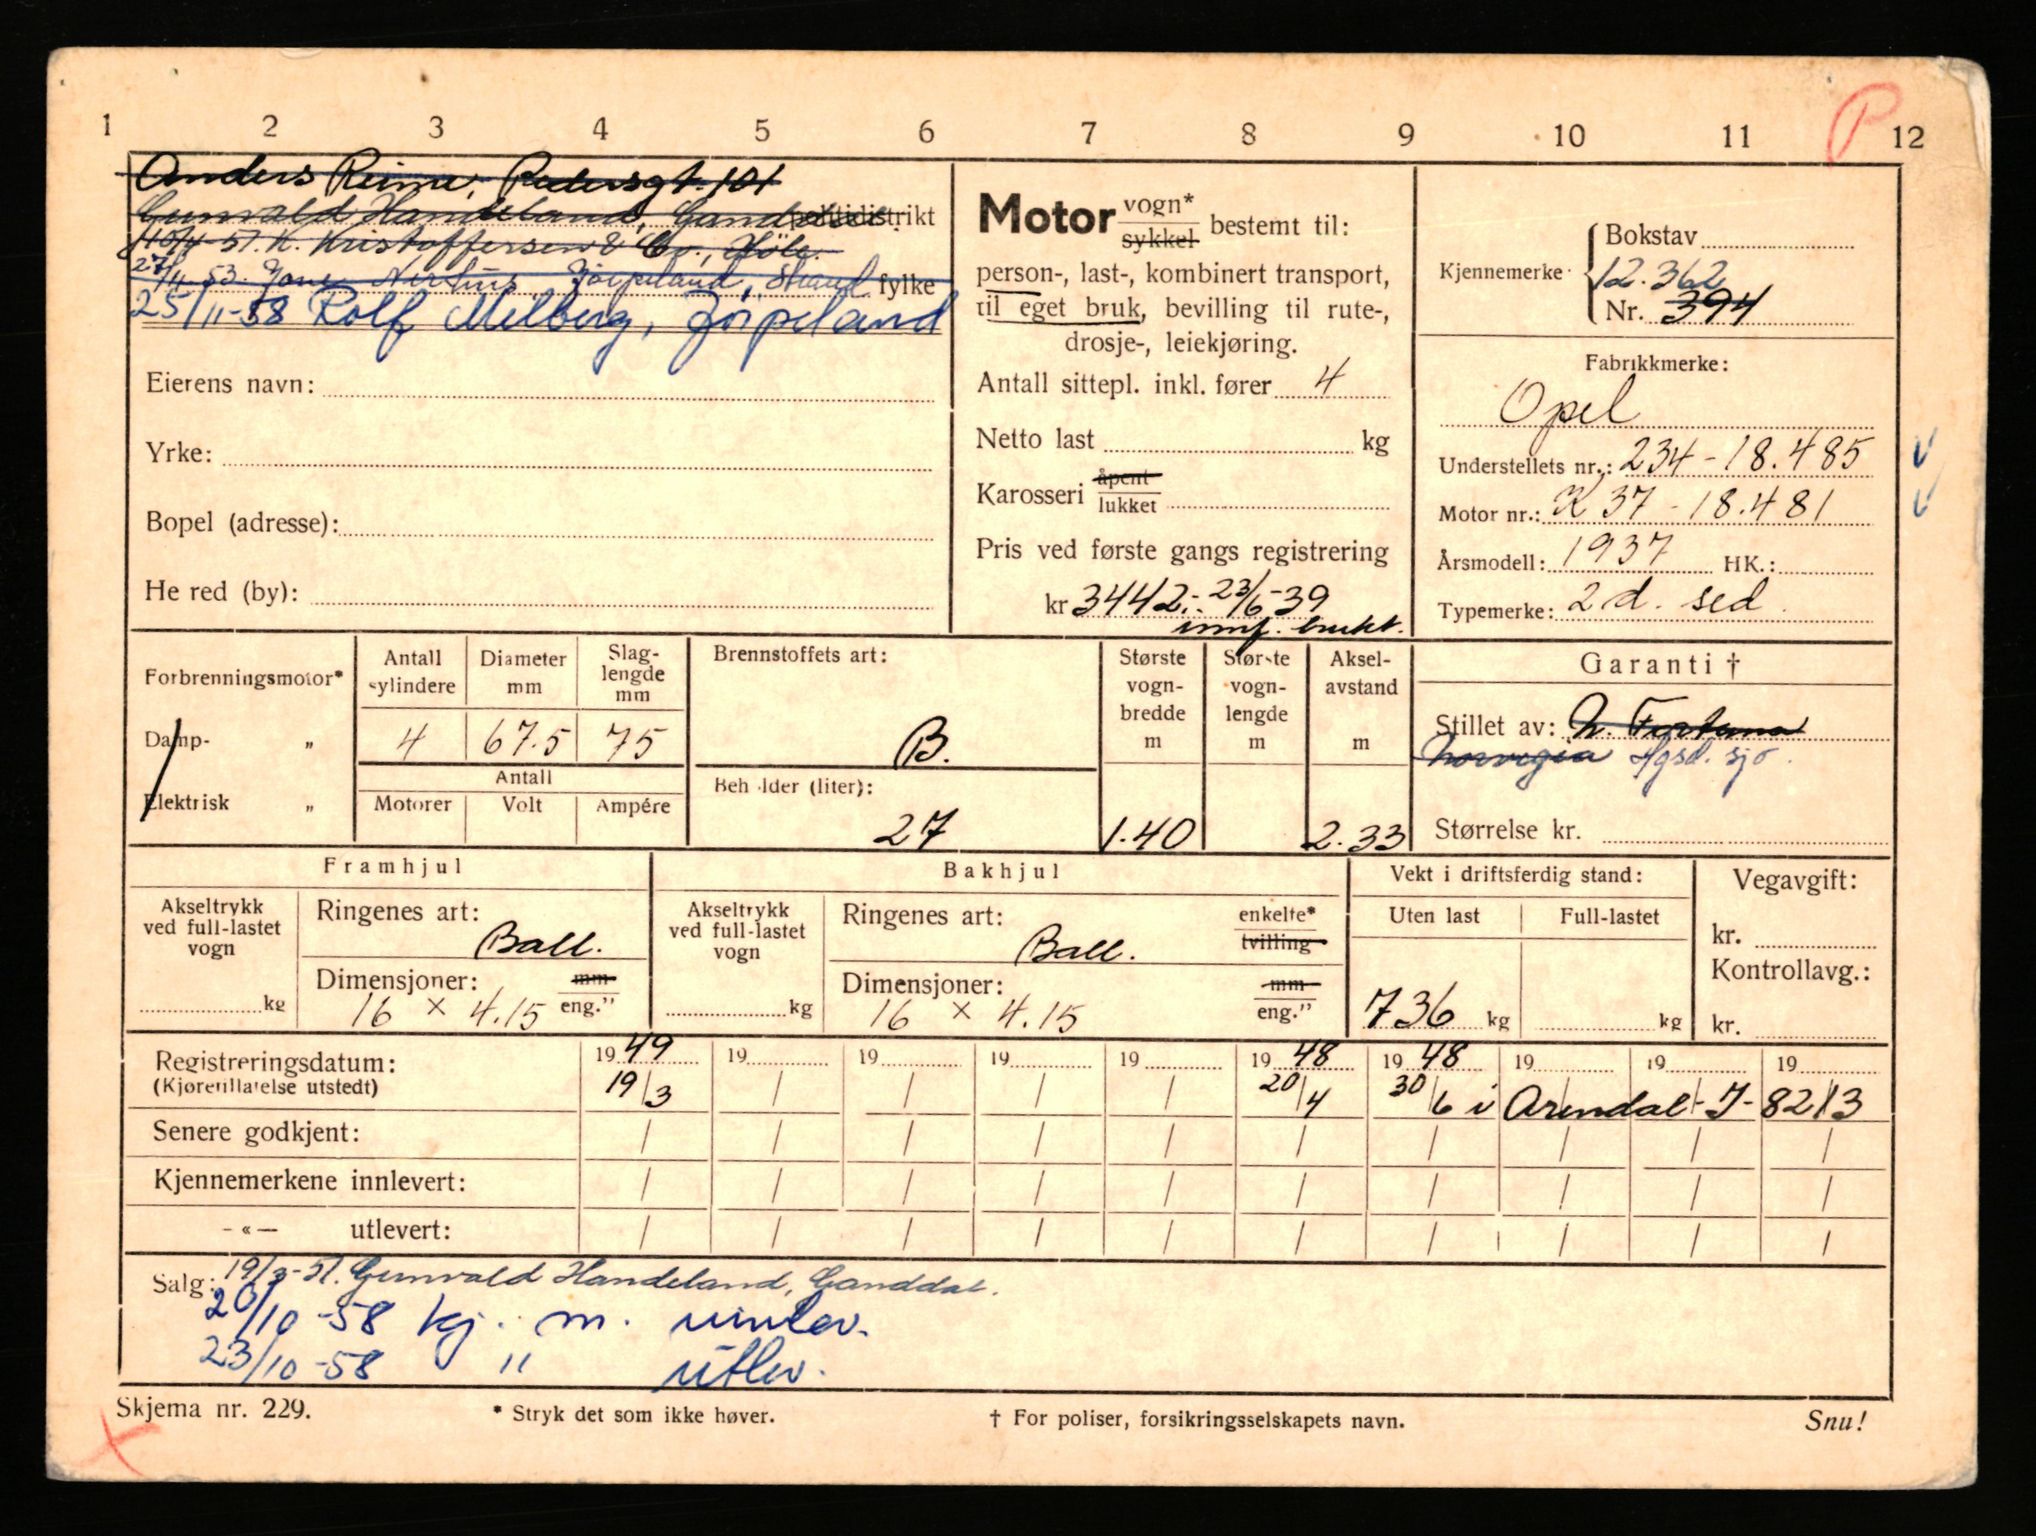 1 2 3 4 5 6 7 8 9 10 11 12
P
Anders Reime, Pedersgt. 101
Gunvald Handeland, Ganddal politidistrikt
10/4-51. K. Kristoffersen & Co., Høle.
27/11-53. Jone Jørpeland, Strand fylke
25/11-58 Rolf Melberg, Jørpeland
Eierens navn:
Yrke:
Bopel (adresse):
He red (by):
Motor vogn* sykkel bestemt til:
person-, last-, kombinert transport,
til eget bruk, bevilling til rute-,
drosje-, leiekjøring.
Antall sittepl. inkl. fører 4
Netto last kg
Karosseri åpent lukket
Pris ved første gangs registrering
kr 3442,- 23/6-39
innf. brukt.
Kjennemerke
Bokstav
12.362
Nr. 394
Fabrikkmerke:
Opel
Understellets nr.: 234-18.485
Motor nr.: K 37-18.481
Årsmodell: 1937 HK.:
Typemerke: 2 d. sed.
Forbrenningsmotor*
Damp- „
Elektrisk „
Antall sylindere
4
Diameter mm
67.5
Slaglengde mm
75
Antall
Motorer Volt Ampére
Brennstoffets art:
B.
Beholder (liter):
27
Største vognbredde m
1.40
Største vognlengde m
Akselavstand m
2.33
Garanti †
Stillet av: N. Fortuna
Norvegia Hgsd. sjø.
Størrelse kr.
Framhjul
Akseltrykk ved full-lastet vogn
kg
Ringenes art:
Ball.
Dimensjoner: mm
16 × 4.15 eng.”
Bakhjul
Akseltrykk ved full-lastet vogn
kg
Ringenes art: enkelte*
Ball. tvilling
Dimensjoner: mm
16 × 4.15 eng.”
Vekt i driftsferdig stand:
Uten last Full-lastet
736 kg kg
Vegavgift:
kr.
Kontrollavg.:
kr.
Registreringsdatum: 1949 19 19 19 19 1948 1948 19 19 19
(Kjøretillatelse utstedt) 19/3 / / / / 20/4 30/6 i Arendal - I - 8213
Senere godkjent: / / / / / / / / / /
Kjennemerkene innlevert: / / / / / / / / / /
- « — utlevert: / / / / / / / / / /
Salg: 19/3-51. Gunvald Handeland, Ganddal.
20/10-58 kj. m. innlev.
23/10-58 " utlev.
Skjema nr. 229.
* Stryk det som ikke høver.
† For poliser, forsikringsselskapets navn.
Snu!